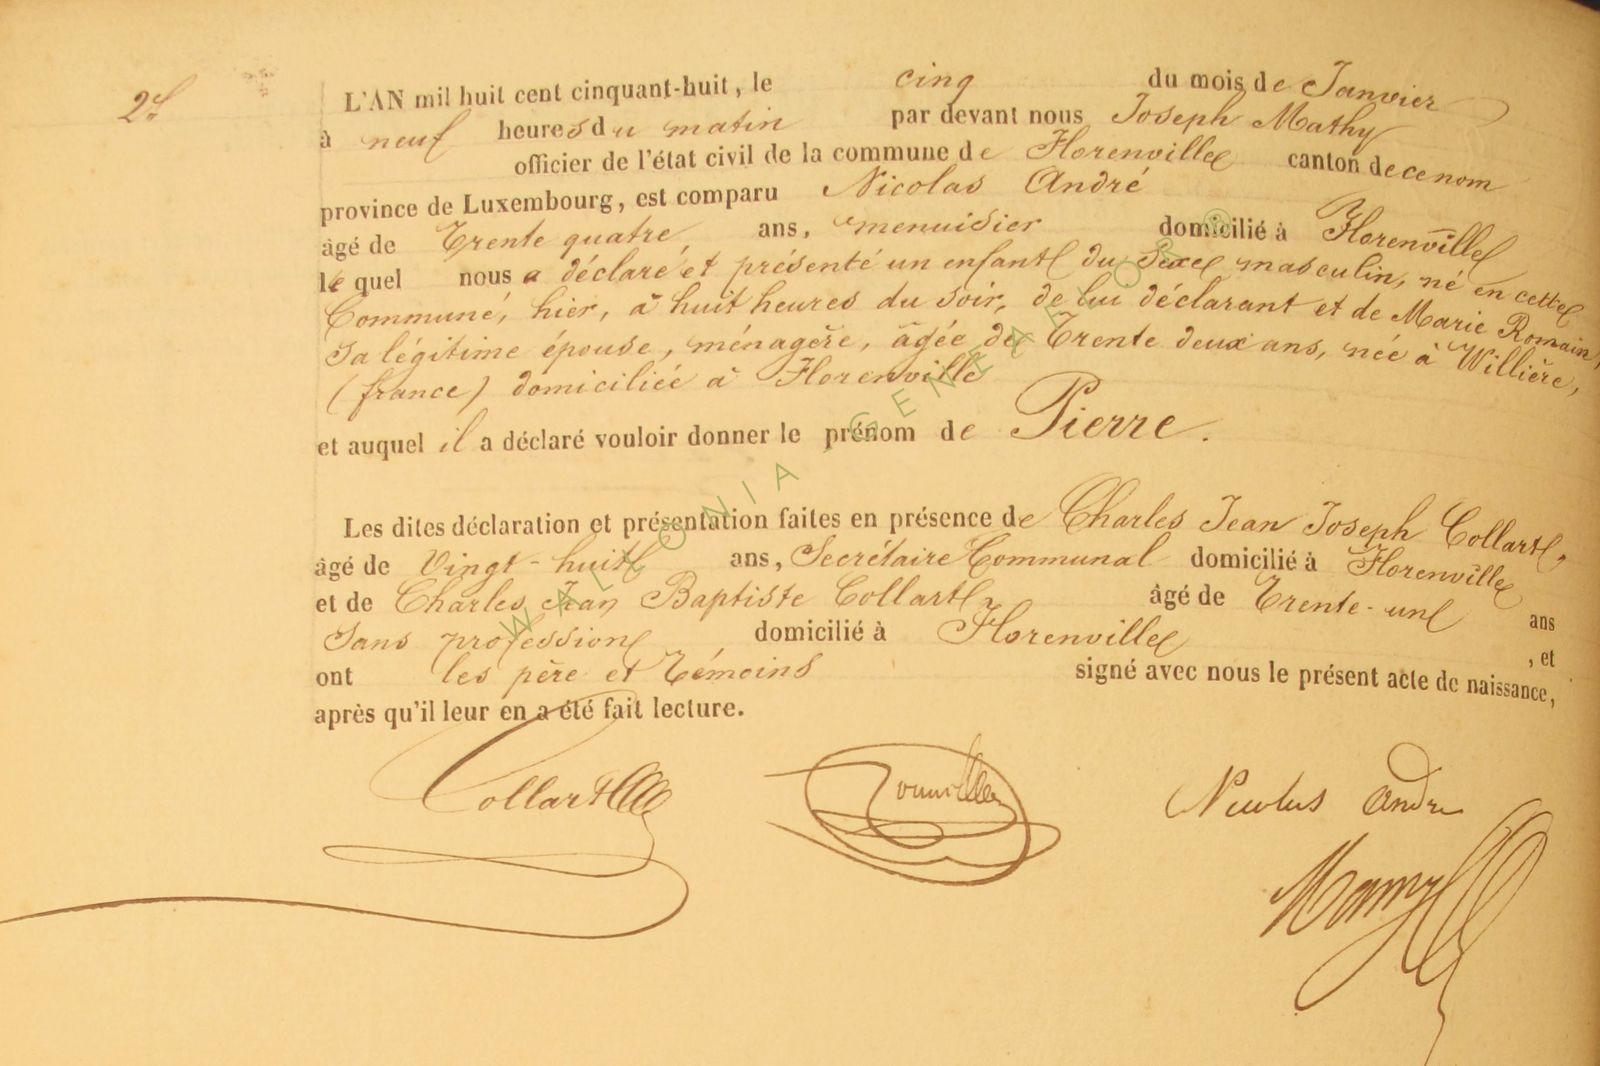 2.
L'AN mil huit cent cinquant-huit, le cinq du mois de Janvier
à neuf heures du matin par devant nous Joseph Mathy
officier de l'état civil de la commune de Florenville canton de ce nom
province de Luxembourg, est comparu Nicolas André
âgé de Trente quatre ans, menuisier domicilié à Florenville
le quel nous a déclaré et présenté un enfant du Sexe masculin, né en cette
Commune, hier, à huit heures du soir, de lui déclarant et de Marie Romain,
sa légitime épouse, ménagère, âgée de Trente deux ans, née à Willière,
(france) domiciliée à Florenville
et auquel il a déclaré vouloir donner le prénom de Pierre.
Les dites déclaration et présentation faites en présence de Charles Jean Joseph Collart,
âgé de Vingt-huit ans, Secrétaire Communal domicilié à Florenville
et de Charles Jean Baptiste Collart, âgé de Trente-un ans
Sans profession domicilié à Florenville , et
ont les père et Témoins signé avec nous le présent acte de naissance,
après qu'il leur en a été fait lecture.
Collart Nicolas andre
WALLONIA - GENEALOR ®